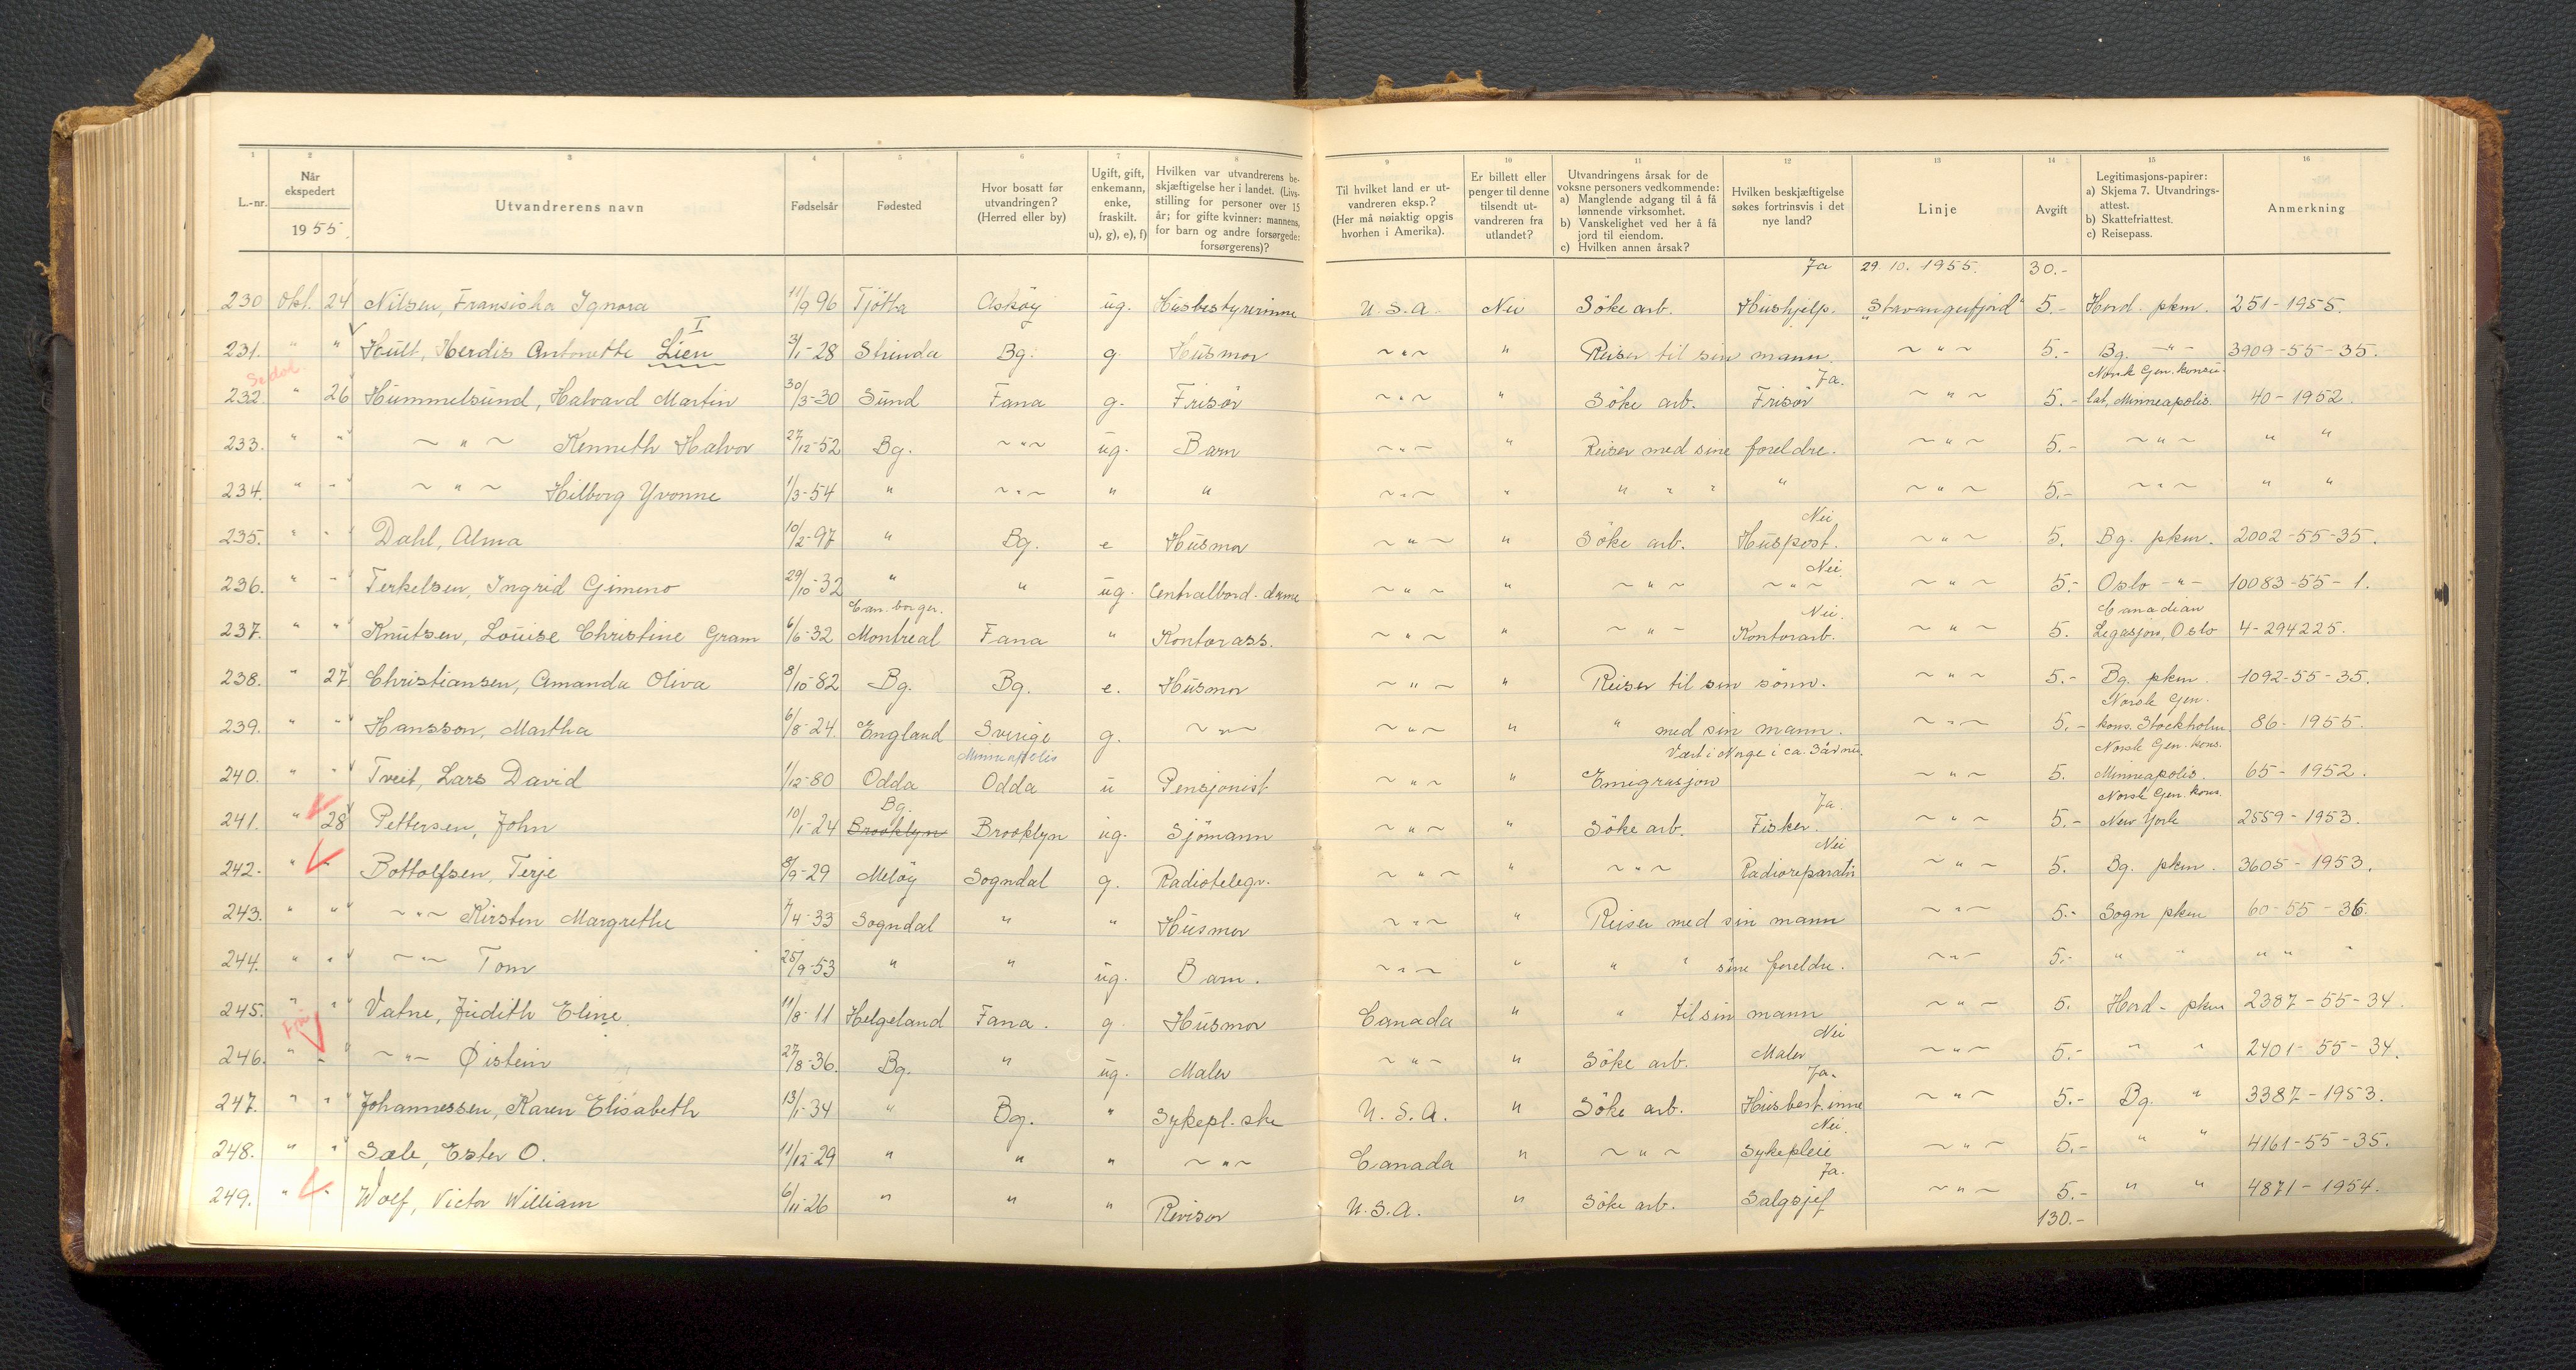 1 2 3 4 5 6 7 8 9 10 11 12 13 14 15 16
L.-nr. | Når ekspedert 1955 | Utvandrerens navn | Fødselsår | Fødested | Hvor bosatt før utvandringen? (Herred eller by) | Ugift, gift, enkemann, enke, fraskilt. u), g), e), f) | Hvilken var utvandrerens beskjæftigelse her i landet. (Livsstilling for personer over 15 år; for gifte kvinner: mannens, for barn og andre forsørgede: forsørgerens)? | Til hvilket land er utvandreren eksp.? (Her må nøiaktig opgis hvorhen i Amerika). | Er billett eller penger til denne tilsendt utvandreren fra utlandet? | Utvandringens årsak for de voksne personers vedkommende: a) Manglende adgang til å få lønnende virksomhet. b) Vanskelighet ved her å få jord til eiendom. c) Hvilken annen årsak? | Hvilken beskjæftigelse søkes fortrinsvis i det nye land? | Linje | Avgift | Legitimasjons-papirer: a) Skjema 7. Utvandringsattest. b) Skattefriattest. c) Reisepass. | Anmerkning
Ja 29. 10. 1955. 30.-
230 Okt. 24 Nilsen, Fransiska Ignora 11/9 96 Tjötta Asköy ug. Husbestyrerinne U.S.A. Nei Söke arb. Hushjelp. "Stavangerfjord" 5.- Hord. pkm. 251-1955.
I
231. " " Hult, Herdis Antonette Lien 3/1-28 Strinda Bg. g. Husmor ~"~ " Reiser til sin mann. ~"~ 5.- Bg. -"- 3909-55-35.
Ja. Norsk Gen. konsu-
232. " 26 Hummelsund, Halvard Martin 30/3-30 Sund Fana g. Frisör ~"~ " Söke arb. Frisör ~"~ 5.- lat, Minneapolis. 40-1952.
233. " " ~"~ Kenneth Halvor 27/12-52 Bg. ~"~ ug. Barn ~"~ Reiser med sine foreldre. ~"~ 5.- ~"~ " "
234. " " ~"~ Hilborg Yvonne 1/3-54 " ~"~ " " ~"~ " " " " " ~"~ 5.- ~"~ " "
Nei
235. " " Dahl, Alma 10/2-97 " Bg. e Husmor ~"~ " Söke arb. Huspost. ~"~ 5. Bg. pkm. 2002-55-35.
Nei.
236. " " Terkelsen, Ingrid Gimeno 29/10-32 " " ug. Centralbord.dame ~"~ " ~"~ ~"~ ~"~ 5.- Oslo -"- 10083-55-1.
Can. borger. Nei. Canadian
237. " " Knutsen, Louise Christine Gram 6/6-32 Montreal Fana " Kontorass. ~"~ " ~"~ Kontorarb. ~"~ 5. Legasjon, Oslo 4-294225.
238. " 27 Christiansen, Amanda Oliva 8/10-82 Bg. Bg. e. Husmor ~"~ " Reiser til sin sönn. ~"~ 5.- Bg. pkm. 1092-55-35.
Norsk Gen.
239. " " Hansson, Martha 6/8-24. England Sverige g. ~"~ ~"~ " " med sin mann. ~"~ 5.- kons. Stockholm 86-1955.
Minneapolis Vært i Norge i ca. 3 år nu. Norsk Gen. kons.
240. " " Tveit, Lars David 1/12-80 Odda Odda u Pensjonist ~"~ " Emigrasjon ~"~ 5. Minneapolis. 65-1952.
Bg. Ja. Norsk Gen. kons.
241. " 28 Pettersen, John 10/1-24 Brooklyn Brooklyn ug. Sjömann ~"~ " Söke arb. Fisker. ~"~ 5.- New York 2559-1953.
Nei
242. " Bottolfsen, Terje 8/9-29 Melöy Sogndal g. Radiotelegr. ~"~ " ~"~ Radioreparatör ~"~ 5. Bg. pkm. 3605-1953.
243. " " ~"~ Kirsten Margrethe 7/4-33 Sogndal " " Husmor ~"~ " Reiser med sin mann ~"~ 5.- Sogn pkm 60-55-36.
244. " " ~"~ Tom 25/9-53 " " ug. Barn. ~"~ " " " sine foreldre. ~"~ 5.- " " " " "
245. " " Vatne, Judith Eline 11/8-11 Helgeland Fana. g Husmor Canada " " til sin mann ~"~ 5. Hord- pkm 2387-55-34.
Nei
246. " " ~"~ Öistein 27/8-36. Bg. " ug. Maler ~"~ " Söke arb. Maler ~"~ 5.- " " 2401-55-34.
Ja.
247. " " Johannessen, Karen Elisabeth 13/1-34 " Bg. " Sykepl.ske U.S.A. " Söke arb. Husbest.inne ~"~ 5.- Bg. " 3387-1953.
Nei.
248. " " Sæle, Ester O. 11/12-29 " " " ~"~ Canada " ~"~ Sykepleie ~"~ 5.- " " 4161-55-35.
Ja.
249. " " Wolf, Victor William 6/11-26 " " " Revisor U.S.A. " Söke arb. Salgsjef ~"~ 5.- " " 4871-1954.
130.-